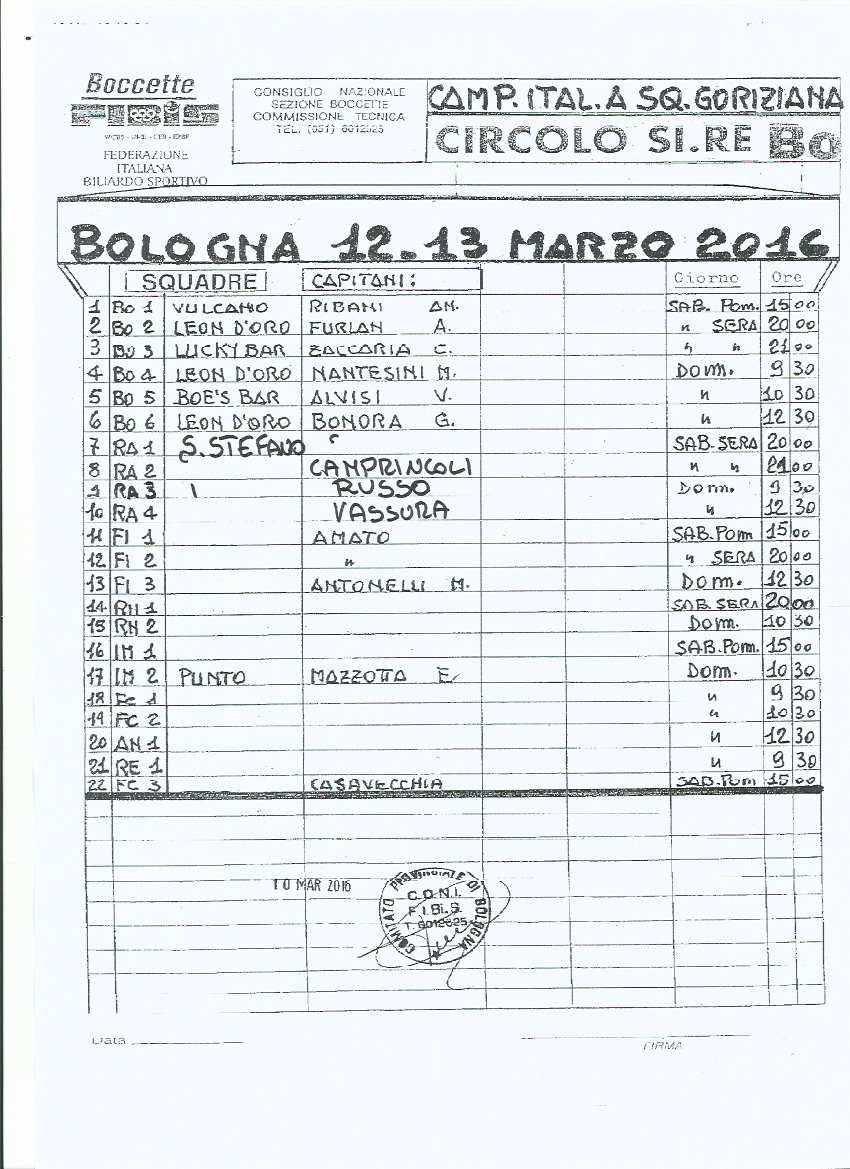 Boccette
FIBiS
FEDERAZIONE
ITALIANA
BILIARDO SPORTIVO
CONSIGLIO NAZIONALE
SEZIONE BOCCETTE
COMMISSIONE TECNICA
TEL. (051) 6012525
CAMP. ITAL. A SQ. GORIZIANA
CIRCOLO SI.RE Bo
BOLOGNA 12-13 MARZO 2016
SQUADRE CAPITANI: Giorno Ore
1 Bo 1 VULCANO RIBANI AM. SAB. Pom. 15 00
2 Bo 2 LEON D'ORO FURLAN A. " SERA 20 00
3 Bo 3 LUCKY BAR ZACCARIA C. " " 21 00
4 Bo 4 LEON D'ORO NANTESINI M. Dom. 9 30
5 Bo 5 BOE'S BAR ALVISI V. " 10 30
6 Bo 6 LEON D'ORO BONORA G. " 12 30
7 RA 1 S. STEFANO SAB. SERA 20 00
8 RA 2 CAMPRINCOLI " " 21 00
9 RA 3 RUSSO Dom. 9 30
10 RA 4 VASSURA " 12 30
11 FI 1 AMATO SAB. Pom 15 00
12 FI 2 " " SERA 20 00
13 FI 3 ANTONELLI M. Dom. 12 30
14 RN 1 SAB. SERA 20 00
15 RN 2 Dom. 10 30
16 IM 1 SAB. Pom. 15 00
17 IM 2 PUNTO MAZZOTTA E. Dom. 10 30
18 FC 1 " 9 30
19 FC 2 " 10 30
20 AN 1 " 12 30
21 RE 1 " 9 30
22 FC 3 CASAVECCHIA SAB. Pom 15 00
10 MAR 2016
COMITATO PROVINCIALE DI BOLOGNA
C.O.N.I.
F.I.Bi.S.
T. 6012525
Data
FIRMA